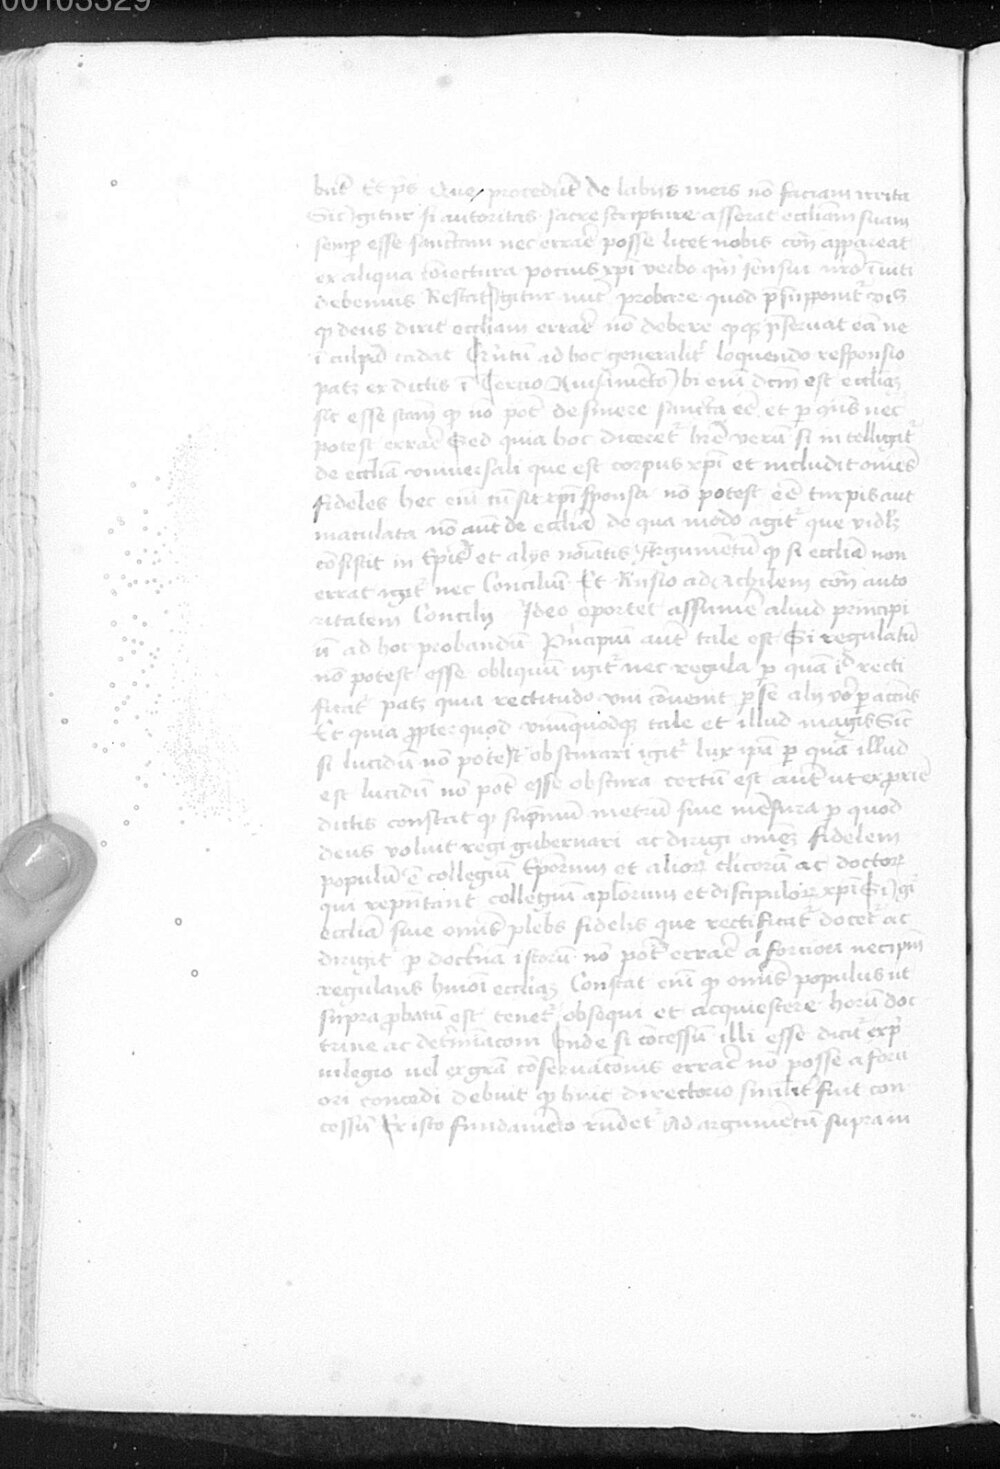 00103329
bunt Et p̄s Que procedūt de labiis meis nō faciam irrita
Sic igitur si autoritas sacre scripture asserat eccliam suam
semp̱ esse sanctam nec errar̄e posse licet nobis cōm appareat
ex aliqua cōiectura pocius xp̄i verbo qm̄ sensui nr̄o īniti
debemus Restat igitur nūc probare quod p̄supponit᷑
ꝙ deus dixit eccliam errar̄e nō debere
ī culpā cadat ad hoc generalit᷑ loquendo responsio
patꝫ ex dictis ī tercio Auisamēto vbi enī dc̄m est eccliaꝫ
sic esse scam̄ ꝙ nō pot̄ desinere sancta eē et ꝑ nec
potest errar̄e Sed quia hoc diceret᷑ verū si intelligit᷑
de ecclīa vniuersali que est corpus xp̄i et includit omēs
fideles hec enī cū sit xp̄i sponsa nō potest eē turpis aut
maculata nō aūt de ecclīa de qua modo agit᷑ que vidlꝫ
cōsistit in Ep̄is et aliis noīatis Argumētū ꝙ si ecclīa non
errat igit᷑ nec Conciliū Et Rn̄sio ad Achilem cōm auto
ritatem Concilii Ideo oportet assumē aliud principi
ū ad hoc probandū Principiū aūt tale est Si regulatū
nō potest esse obliquū igit᷑ nec regula ꝑ quā id recti
ficat᷑ patꝫ quia rectitudo vni cōuenit ꝑ se alii vero ꝑ accn̄s
Et quia propter quod vnūquodqꝫ tale et illud magis Sic
si lucidū nō potest obscurari igit᷑ lux ip̄a ꝑ quā illud
est lucidū nō pot̄ esse obscura certū est aūt ut ex
dictis constat ꝙ supremū metrū siue mēsura ꝑ quod
deus voluit regi gubernari ac dirigi omēꝫ fidelem
populū ē collegiū Ep̄orum et alioꝝ clicorū ac doctoꝝ
qui repn̄tant collegiū aplorum et discipuloꝝ xp̄i Si igi᷑
ecclīa siue omīs plebs fidelis que rectificat᷑ docet᷑ ac
dirigit᷑ ꝑ doctn̄a istorū nō pot̄ errar̄e a forciori nec ip̄m
regulans hmōi eccliaꝫ Constat enī ꝙ omīs populus ut
supra probatū est tenet᷑ obsequi et acquiescere horū doc
trine ac det̄mīaconi Vnde si cōcessū illi esse dicit᷑ ex pri
uilegio uel ex grā cōseruacionis errar̄e nō posse a forci
ori concedi debuit ꝙ huic directorio similit᷑ fuit con
cessū Ex isto fundamēto rn̄det᷑ Ad argumētū supra in